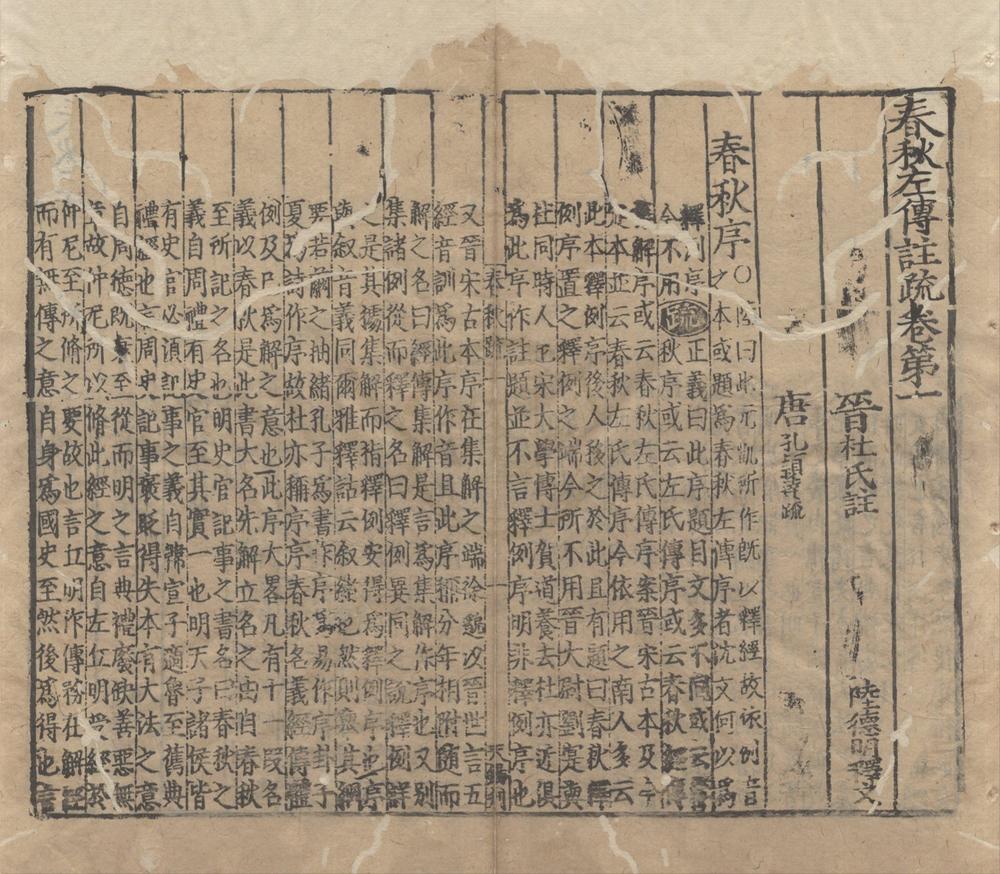 春秋左傳註疏卷第一
晉杜氏註 陸德明釋文
唐孔穎達疏
春秋序○陸曰此元凱所作既以釋經故依例音
之本或題為春秋左傳序者沈文何以為
釋例序
今不用疏正義曰此序題目文多不同或云春秋
秋序或云左氏傳序或云春秋經傳
集解序或云春秋左氏傳序案晉宋古本及今
定本並云春秋左氏傳序今依用之南人多云
此本釋例序後人移之於此且有題曰春秋釋
例序置之釋例之端今所不用晉大尉劉寔與
杜同時人也宋大學博士賀道養去杜亦近俱
為此序作註題並不言釋例序明非釋例序也
春秋疏 一
又晉宋古本序在集解之端徐邈以晉世言五
經音訓為此序作音且此序稱分年相附隨而
解之名曰經傳集解是言為集解作序也又別
集諸例從而釋之名曰釋例異同之說釋例詳
之是其據集解而指釋例安得為釋例序也序
與敘音義同爾雅釋詁云敘緒也然則舉其綱
要若繭之抽緒孔子為書作序為易作序卦子
夏為詩作序故杜亦稱序序春秋名義經傳體
例及己為解之意也此序大畧凡有十一段名
義以春秋是此書大名先解立名之由自春秋
至所記之名也明史官記事之書名曰春秋之
義自周禮有史官至其實一也明天子諸侯皆
有史官必須記事之義自韓宣子適魯至舊典
禮經也言周史記事褒貶得失本有大法之意
自周德既衰至從而明之言典禮廢缺善惡無
章故仲尼所以脩此經之意自左丘明受經於
仲尼至所脩之要故也言丘明作傳務在解經
而有無傳之意自身為國史至然後為得也言